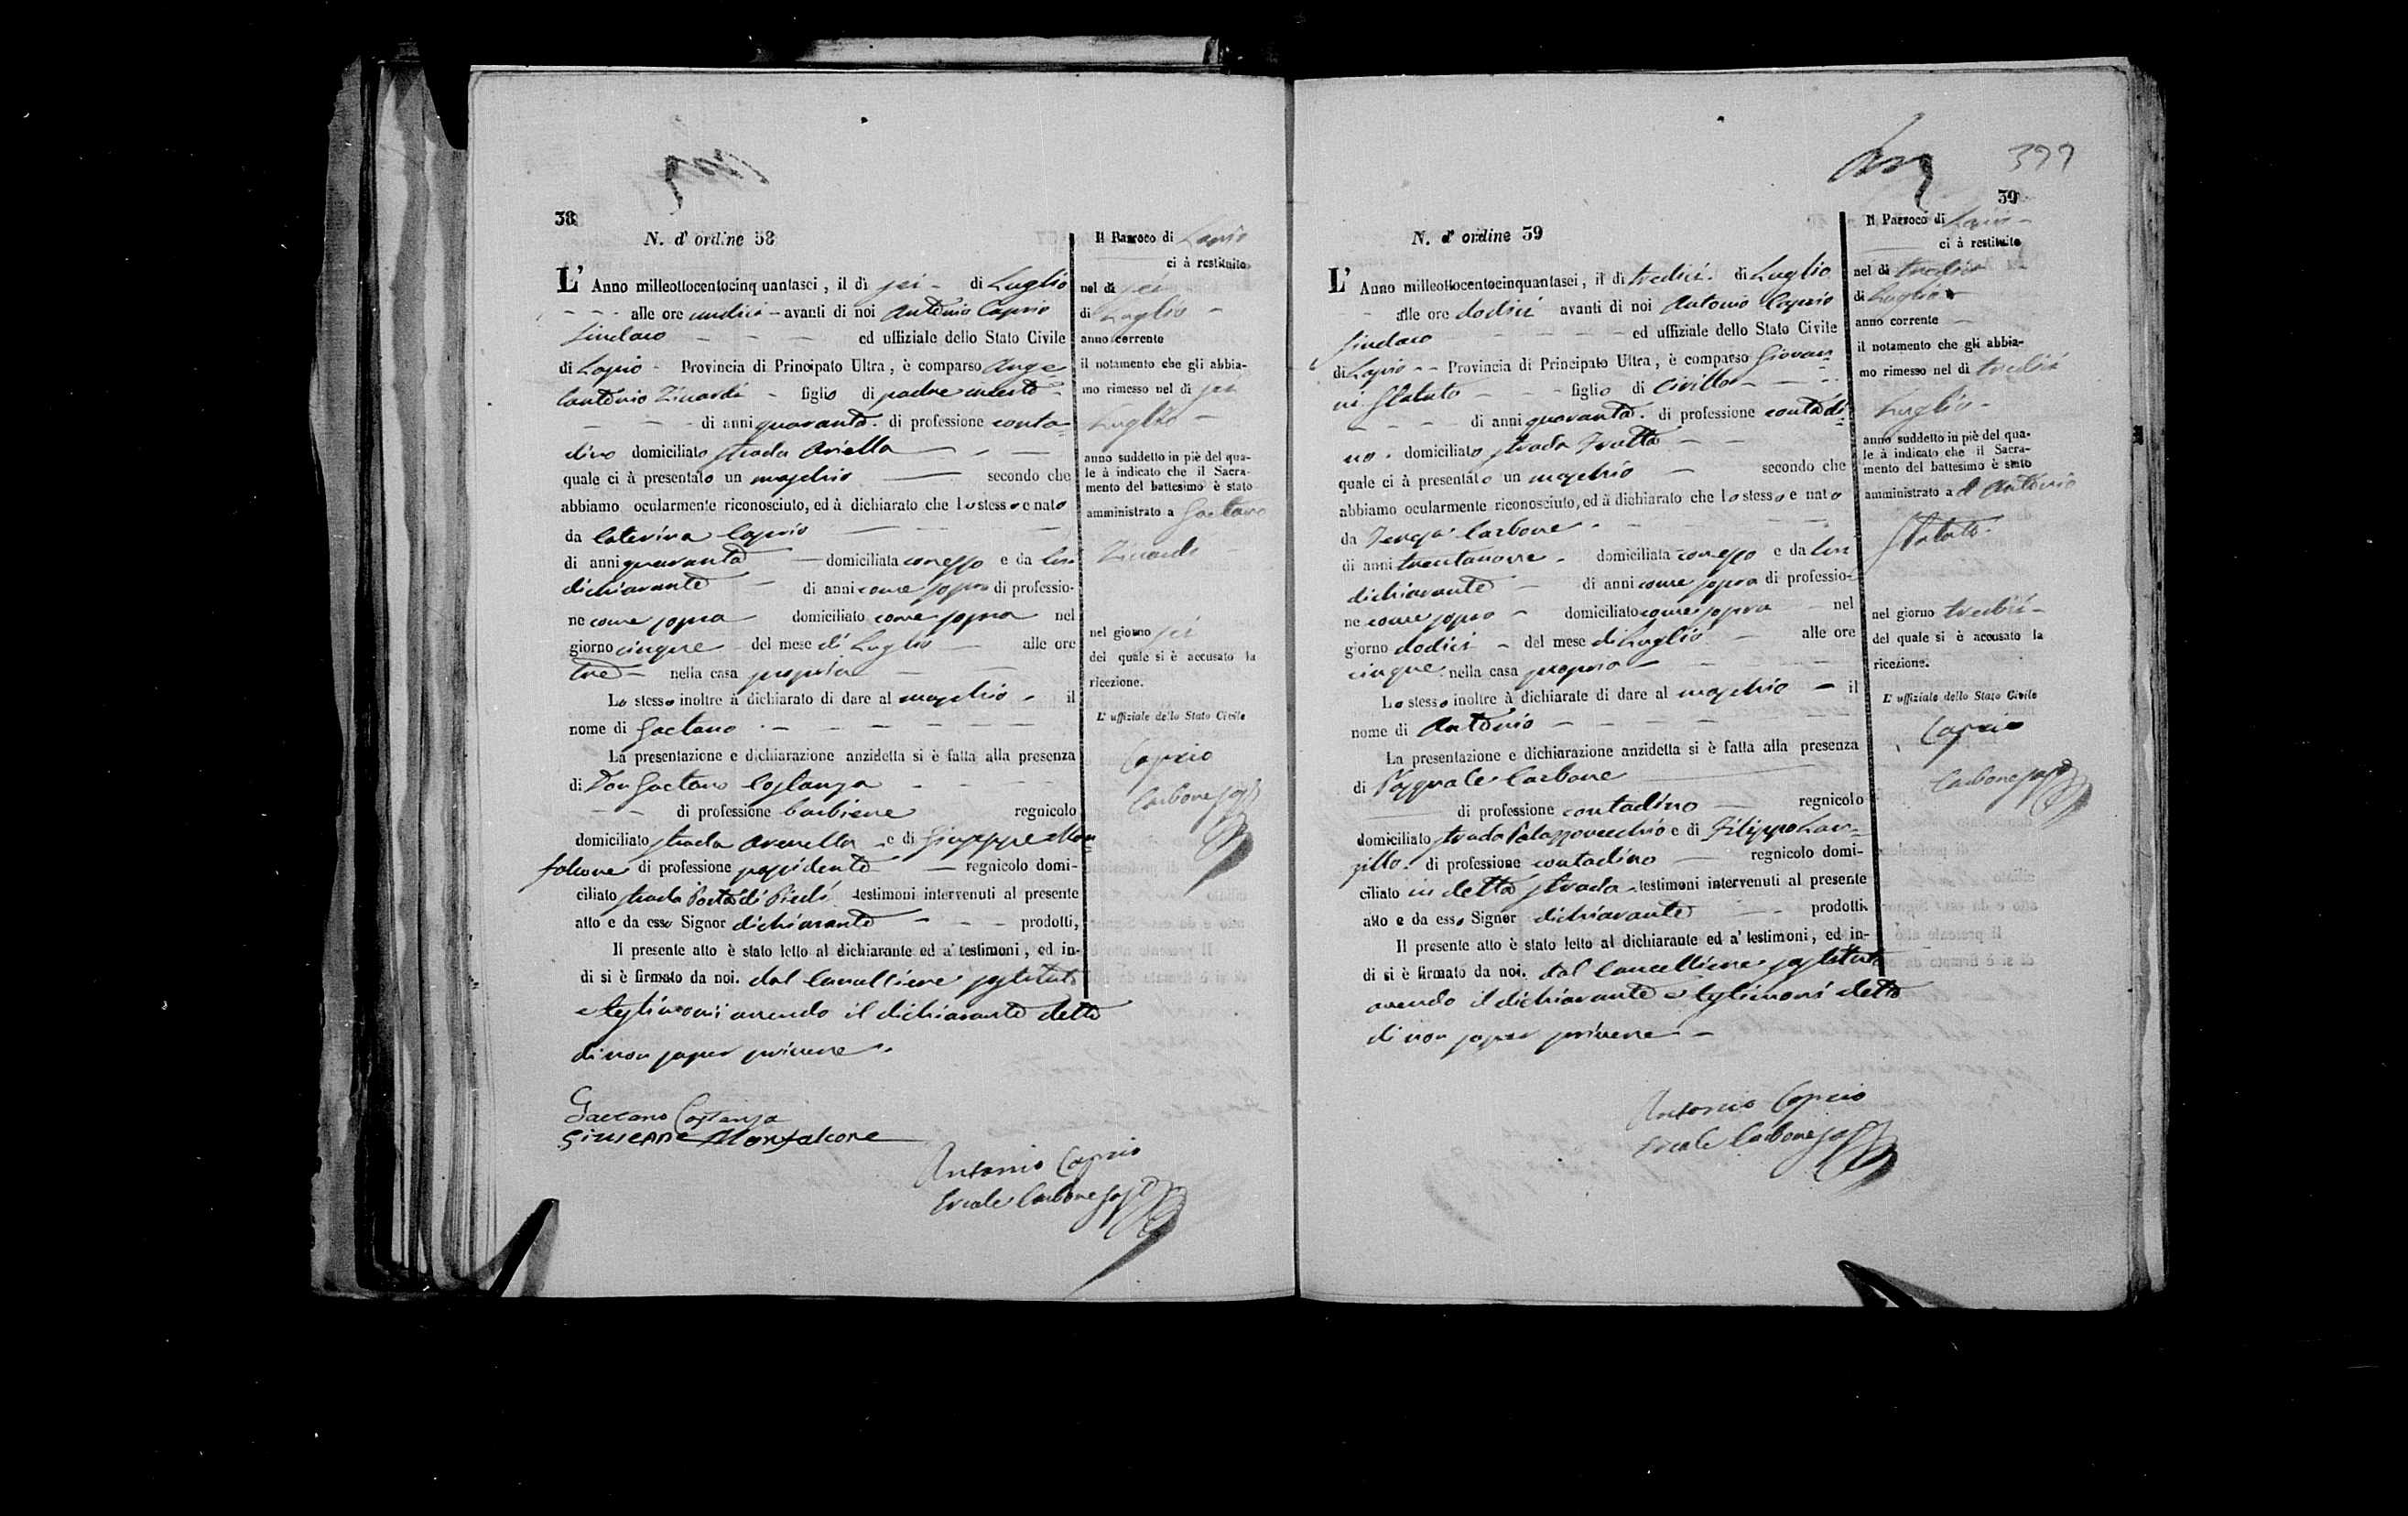 38
N. d' ordine 38
L' Anno milleottocentocinquantasei, il dì sei - di Luglio
- - - alle ore undici - avanti di noi Antonio Caprio
Sindaco - - - ed uffiziale dello Stato Civile
di Lapio - Provincia di Principato Ultra, è comparso Ange=
lantonio Zinardi - figlio di padre incerto -
- - - di anni quaranta. di professione conta=
dino domiciliato strada Ariella - - -
quale ci à presentato un maschio secondo che
abbiamo ocularmente riconosciuto, ed à dichiarato che lo stesso e nato
da Caterina Caprio
di anni quaranta - domiciliata con esso e da lui
dichiarante - di anni come sopra di professio-
ne come sopra domiciliato come sopra nel
giorno cinque - del mese di Luglio - alle ore
tre - nella casa propria -
Lo stesso inoltre à dichiarato di dare al maschio - il
nome di Gaetano - - - - -
La presentazione e dichiarazione anzidetta si è fatta alla presenza
di Don Gaetano Costanza - -
- - di professione barbiere regnicolo
domiciliato strada - e di Giuseppe Mon
falcone di professione possidente - regnicolo domi-
ciliato strada Porta di Piedi testimoni intervenuti al presente
atto e da esso Signor dichiarante - - - prodotti,
Il presente atto è stato letto al dichiarante ed a' testimoni, ed in-
di si è firmato da noi. dal Cancelliere sostituto
e testimoni avendo il dichiarante detto
di non saper scrivere.
Gaetano Costanza
Giuseppe Monfalcone
Antonio Caprio
Ercole Carbone sost
Il Parroco di Lapio
ci à restituito
nel dì sei
di Luglio -
anno corrente
il notamento che gli abbia-
mo rimesso nel dì sei
Luglio -
anno suddetto in piè del qua-
le à indicato che il Sacra-
mento del battesimo è stato
amministrato a Gaetano
Zinardi
nel giorno sei
del quale si è accusato la
ricezione.
L' uffiziale dello Stato Civile
Caprio
Carbone sost
377
39
N. d' ordine 39
L' Anno milleottocentocinquantasei, il dì tredici. di Luglio
- alle ore dodici avanti di noi Antonio Caprio
Sindaco - - - - ed uffiziale dello Stato Civile
di Lapio - - Provincia di Principato Ultra, è comparso Giovan=
ni Statuto - - - figlio di Cirillo - - -
- - - - di anni quaranta. di professione contadi=
no. domiciliato strada Tratta - -
quale ci à presentato un maschio - secondo che
abbiamo ocularmente riconosciuto, ed à dichiarato che lo stesso e nato
da Teresa Carbone - - -
di anni trentanove - domiciliata con esso e da lui
dichiarante - di anni come sopra di professio-
ne come sopra - domiciliato come sopra - nel
giorno dodici - del mese di Luglio - alle ore
cinque nella casa propria - - -
Lo stesso inoltre à dichiarato di dare al maschio - il
nome di Antonio - - - - -
La presentazione e dichiarazione anzidetta si è fatta alla presenza
di Pasquale Carbone
di professione contadino - regnicolo
domiciliato strada Palazzovecchio e di Filippo Lau=
zillo. di professione contadino - regnicolo domi-
ciliato in detta strada - testimoni intervenuti al presente
atto e da esso Signor dichiarante - - prodotti.
Il presente atto è stato letto al dichiarante ed a' testimoni, ed in-
di si è firmato da noi. dal Cancelliere sostituto
avendo il dichiarante e testimoni detto
di non saper scrivere -
Antonio Caprio
Ercole Carbone sost
Il Parroco di Lapio -
ci à restituito
nel dì tredici -
di Luglio
anno corrente -
il notamento che gli abbia-
mo rimesso nel dì tredici
Luglio -
anno suddetto in piè del qua-
le à indicato che il Sacra-
mento del battesimo è stato
amministrato a d Antonio
Statuto.
nel giorno tredici -
del quale si è accusato la
ricezione.
L' uffiziale dello Stato Civile
Caprio
Carbone sost